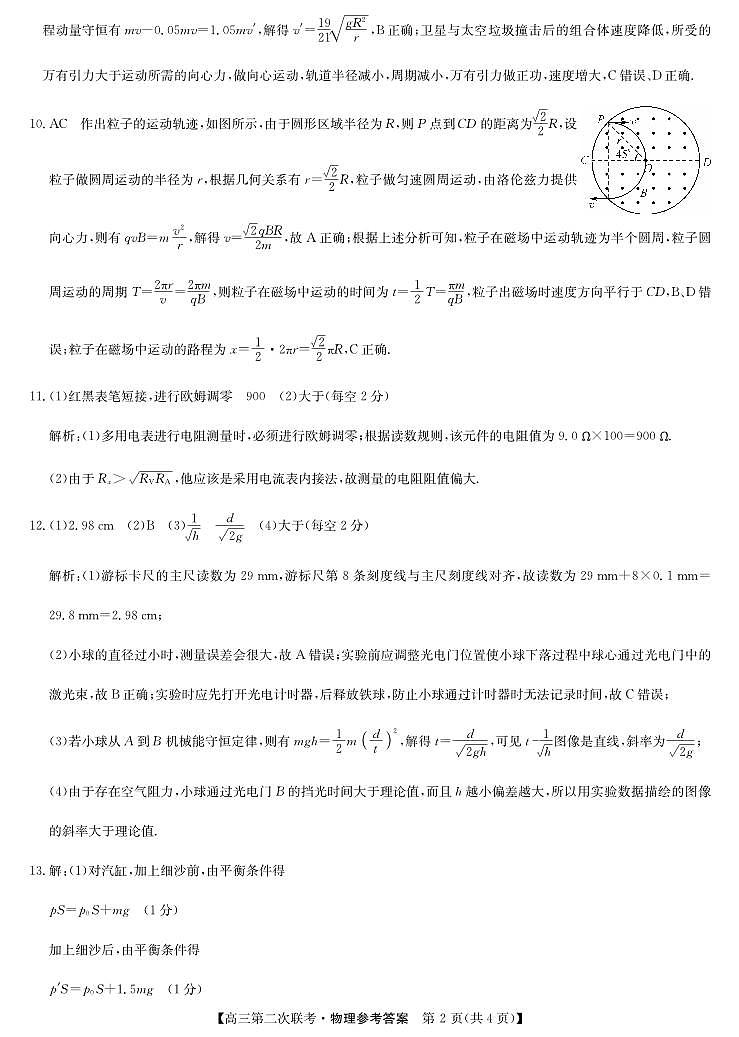 程动量守恒有 mv-0.05mv=1.05mv′,解得 v′=19/21√(gR²/r),B正确;卫星与太空垃圾撞击后的组合体速度降低,所受的
万有引力大于运动所需的向心力,做向心运动,轨道半径减小,周期减小,万有引力做正功,速度增大,C错误、D正确.
10.AC 作出粒子的运动轨迹,如图所示,由于圆形区域半径为 R,则 P 点到 CD 的距离为√2/2R,设
粒子做圆周运动的半径为 r,根据几何关系有 r=√2/2R,粒子做匀速圆周运动,由洛伦兹力提供
P v
r
C 45° O D
B
v
向心力,则有 qvB=m v²/r,解得 v=√2qBR/2m,故 A 正确;根据上述分析可知,粒子在磁场中运动轨迹为半个圆周,粒子圆
周运动的周期 T=2πr/v=2πm/qB,则粒子在磁场中运动的时间为 t=1/2T=πm/qB,粒子出磁场时速度方向平行于 CD,B、D 错
误;粒子在磁场中运动的路程为 x=1/2·2πr=√2/2πR,C 正确.
11.(1)红黑表笔短接,进行欧姆调零 900 (2)大于(每空 2 分)
解析:(1)多用电表进行电阻测量时,必须进行欧姆调零;根据读数规则,该元件的电阻值为 9.0 Ω×100=900 Ω.
(2)由于 Rₓ>√(R_V R_A),他应该是采用电流表内接法,故测量的电阻阻值偏大.
12.(1)2.98 cm (2)B (3)1/√h d/√(2g) (4)大于(每空 2 分)
解析:(1)游标卡尺的主尺读数为 29 mm,游标尺第 8 条刻度线与主尺刻度线对齐,故读数为 29 mm+8×0.1 mm=
29.8 mm=2.98 cm;
(2)小球的直径过小时,测量误差会很大,故 A 错误;实验前应调整光电门位置使小球下落过程中球心通过光电门中的
激光束,故 B 正确;实验时应先打开光电计时器,后释放铁球,防止小球通过计时器时无法记录时间,故 C 错误;
(3)若小球从 A 到 B 机械能守恒定律,则有 mgh=1/2m(d/t)²,解得 t=d/√(2gh),可见 t-1/√h图像是直线,斜率为d/√(2g);
(4)由于存在空气阻力,小球通过光电门 B 的挡光时间大于理论值,而且 h 越小偏差越大,所以用实验数据描绘的图像
的斜率大于理论值.
13.解:(1)对汽缸,加上细沙前,由平衡条件得
pS=p₀S+mg (1 分)
加上细沙后,由平衡条件得
p′S=p₀S+1.5mg (1 分)
【高三第二次联考·物理参考答案 第 2 页(共 4 页)】